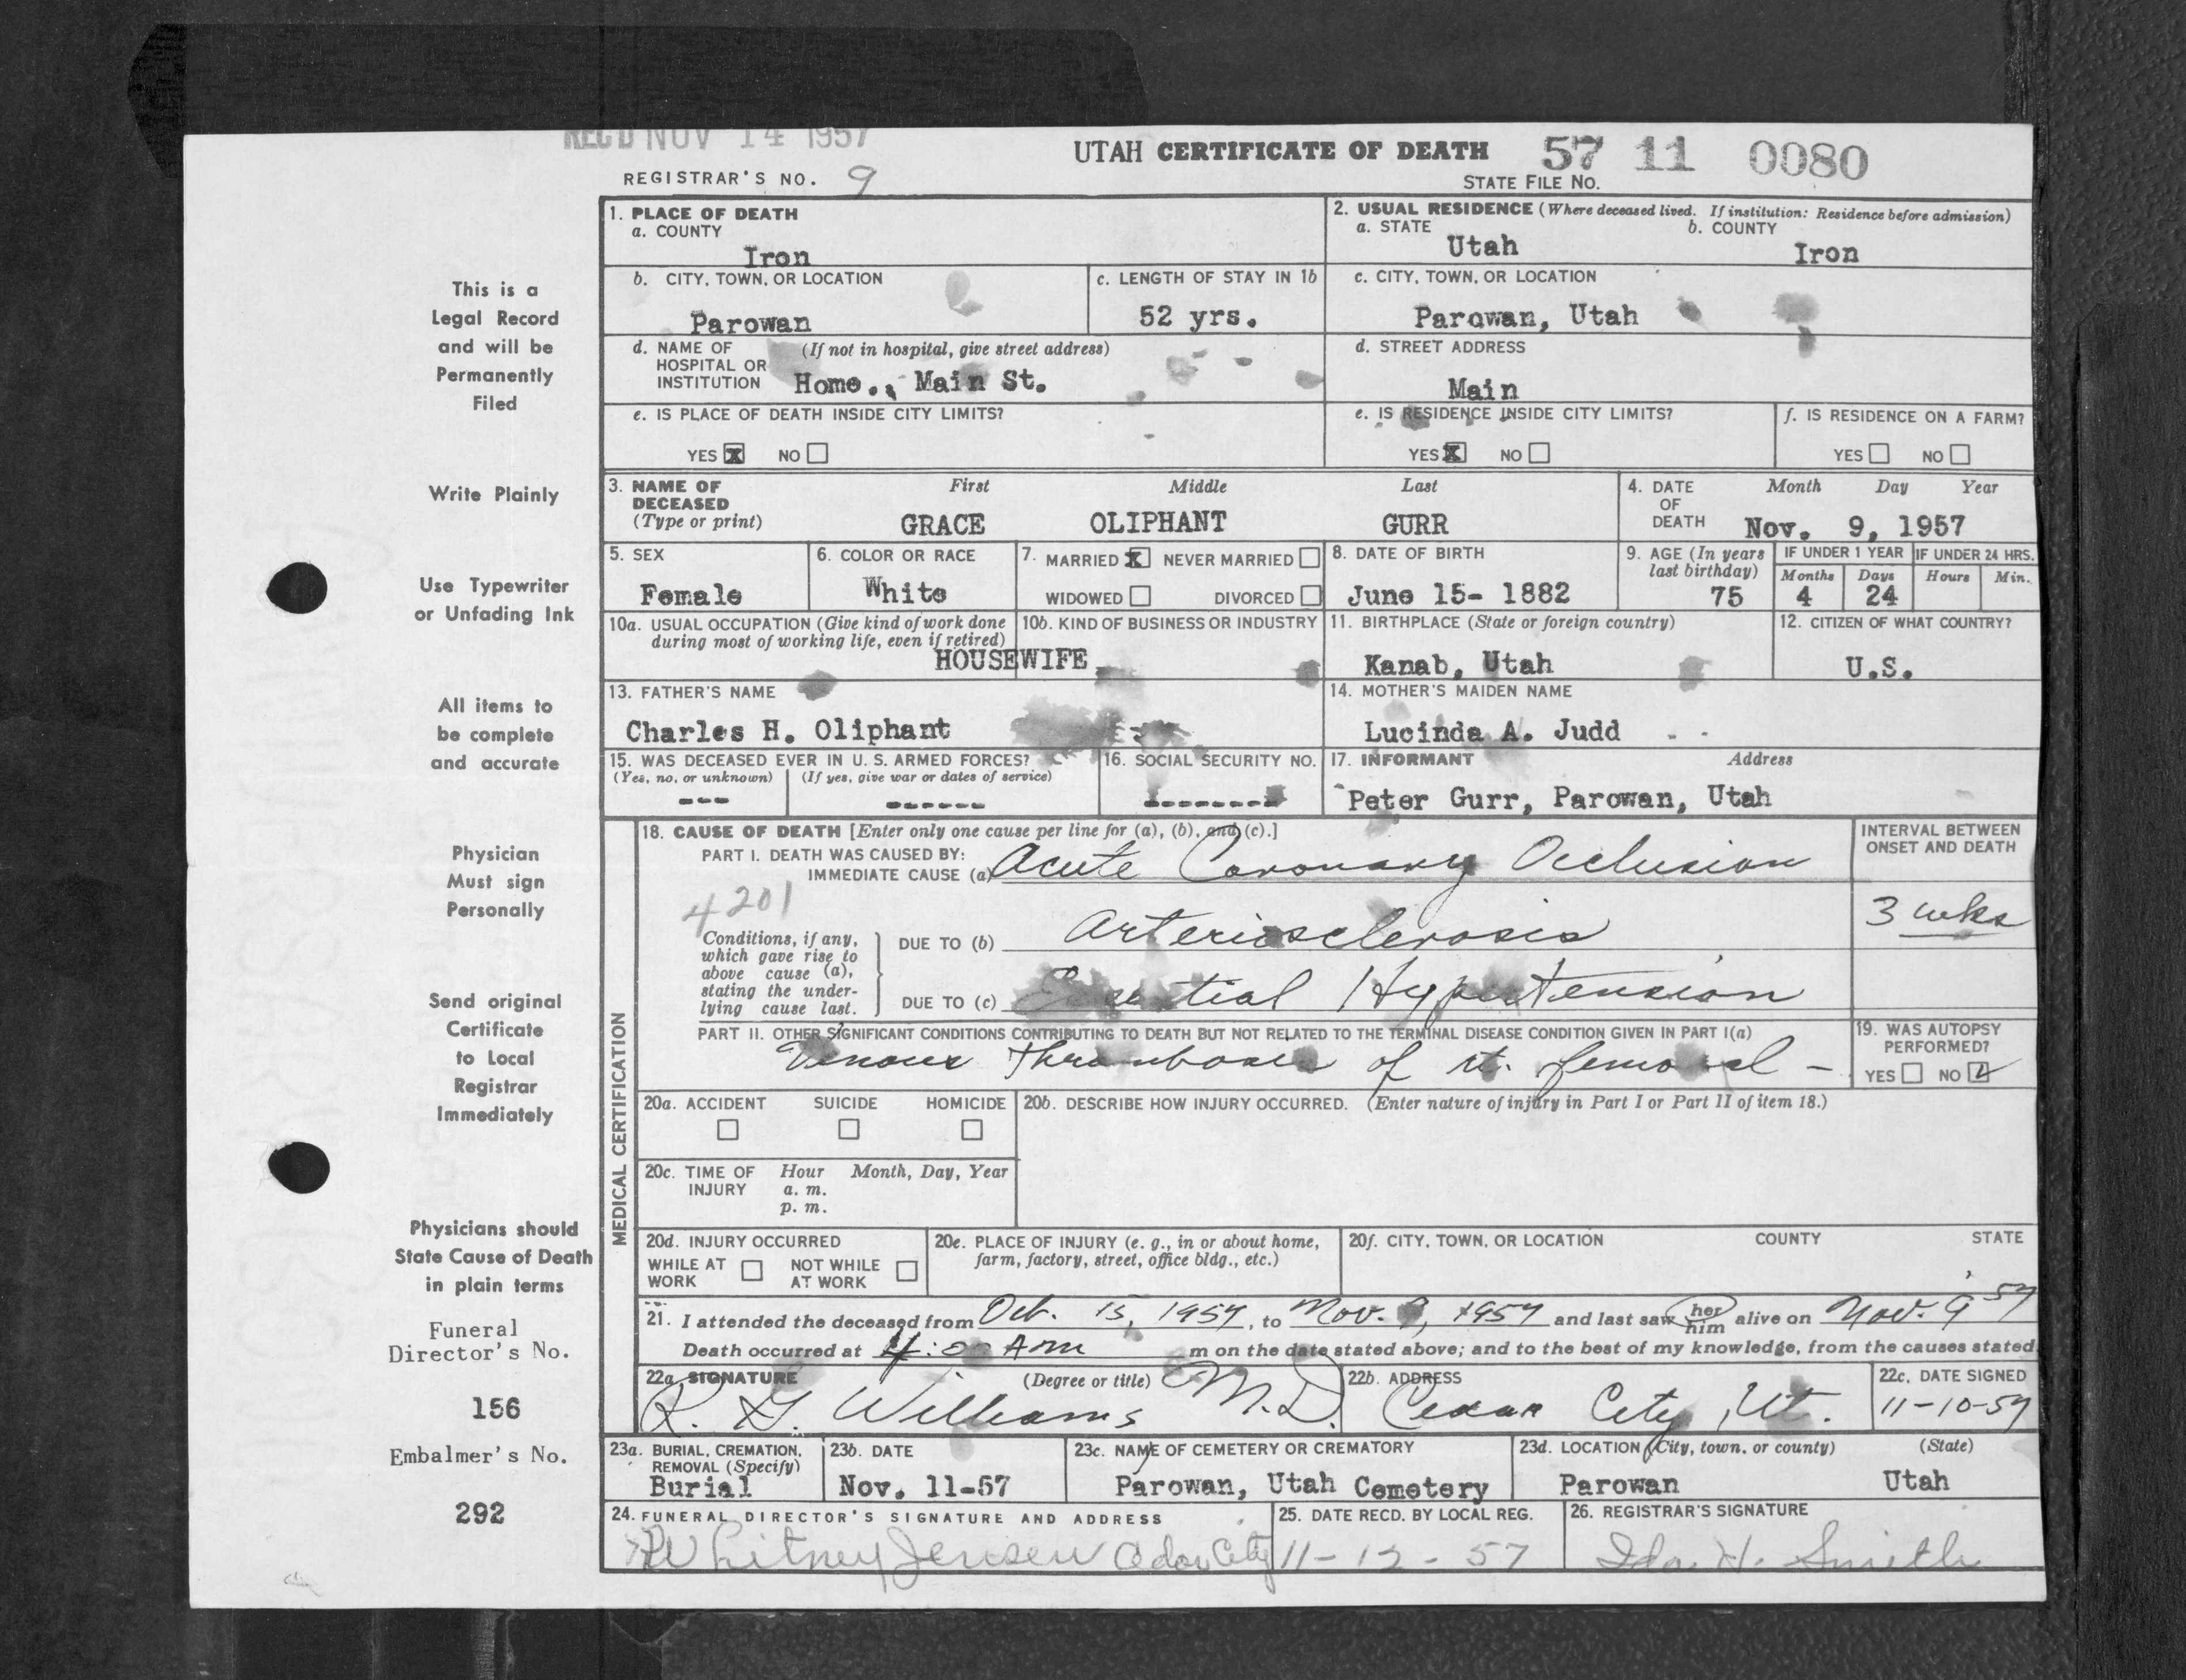 REC'D NOV 14 1957
UTAH CERTIFICATE OF DEATH 57 11 0080
REGISTRAR'S NO. 9
STATE FILE NO.
1. PLACE OF DEATH
a. COUNTY
Iron
2. USUAL RESIDENCE (Where deceased lived. If institution: Residence before admission)
a. STATE b. COUNTY
Utah Iron
b. CITY, TOWN, OR LOCATION
Parowan
c. LENGTH OF STAY IN 1b
52 yrs.
c. CITY, TOWN, OR LOCATION
Parowan, Utah
d. NAME OF HOSPITAL OR INSTITUTION (If not in hospital, give street address)
Home., Main St.
d. STREET ADDRESS
Main
e. IS PLACE OF DEATH INSIDE CITY LIMITS?
YES X NO
e. IS RESIDENCE INSIDE CITY LIMITS?
YES X NO
f. IS RESIDENCE ON A FARM?
YES NO
3. NAME OF DECEASED (Type or print) First Middle Last
GRACE OLIPHANT GURR
4. DATE OF DEATH Month Day Year
Nov. 9, 1957
5. SEX
Female
6. COLOR OR RACE
White
7. MARRIED X NEVER MARRIED
WIDOWED DIVORCED
8. DATE OF BIRTH
June 15- 1882
9. AGE (In years last birthday)
75
IF UNDER 1 YEAR IF UNDER 24 HRS.
Months Days Hours Min.
4 24
10a. USUAL OCCUPATION (Give kind of work done during most of working life, even if retired)
HOUSEWIFE
10b. KIND OF BUSINESS OR INDUSTRY
11. BIRTHPLACE (State or foreign country)
Kanab, Utah
12. CITIZEN OF WHAT COUNTRY?
U.S.
13. FATHER'S NAME
Charles H. Oliphant
14. MOTHER'S MAIDEN NAME
Lucinda A. Judd
15. WAS DECEASED EVER IN U. S. ARMED FORCES?
(Yes, no, or unknown) (If yes, give war or dates of service)
--- ------
16. SOCIAL SECURITY NO.
--------
17. INFORMANT Address
Peter Gurr, Parowan, Utah
MEDICAL CERTIFICATION
18. CAUSE OF DEATH [Enter only one cause per line for (a), (b), and (c).]
PART I. DEATH WAS CAUSED BY:
IMMEDIATE CAUSE (a) Acute Coronary Occlusion
INTERVAL BETWEEN ONSET AND DEATH
3 wks
4201
Conditions, if any, which gave rise to above cause (a), stating the underlying cause last.
DUE TO (b) Arteriosclerosis
DUE TO (c) Essential Hypertension
PART II. OTHER SIGNIFICANT CONDITIONS CONTRIBUTING TO DEATH BUT NOT RELATED TO THE TERMINAL DISEASE CONDITION GIVEN IN PART I(a)
Venous thrombosis of rt. femoral -
19. WAS AUTOPSY PERFORMED?
YES NO ✓
20a. ACCIDENT SUICIDE HOMICIDE
20b. DESCRIBE HOW INJURY OCCURRED. (Enter nature of injury in Part I or Part II of item 18.)
20c. TIME OF INJURY Hour Month, Day, Year
a. m.
p. m.
20d. INJURY OCCURRED
WHILE AT WORK NOT WHILE AT WORK
20e. PLACE OF INJURY (e. g., in or about home, farm, factory, street, office bldg., etc.)
20f. CITY, TOWN, OR LOCATION COUNTY STATE
21. I attended the deceased from Oct. 15, 1957, to Nov. 9, 1957 and last saw her him alive on Nov. 9 57
Death occurred at 4:00 Am m on the date stated above; and to the best of my knowledge, from the causes stated
22a. SIGNATURE (Degree or title)
R. G. Williams M.D.
22b. ADDRESS
Cedar City, Ut.
22c. DATE SIGNED
11-10-57
23a. BURIAL, CREMATION, REMOVAL (Specify)
Burial
23b. DATE
Nov. 11-57
23c. NAME OF CEMETERY OR CREMATORY
Parowan, Utah Cemetery
23d. LOCATION (City, town, or county) (State)
Parowan Utah
24. FUNERAL DIRECTOR'S SIGNATURE AND ADDRESS
Whitney Jensen City
25. DATE RECD. BY LOCAL REG.
11-12-57
26. REGISTRAR'S SIGNATURE
Ida H. Smith
This is a
Legal Record
and will be
Permanently
Filed
Write Plainly
Use Typewriter
or Unfading Ink
All items to
be complete
and accurate
Physician
Must sign
Personally
Send original
Certificate
to Local
Registrar
Immediately
Physicians should
State Cause of Death
in plain terms
Funeral
Director's No.
156
Embalmer's No.
292